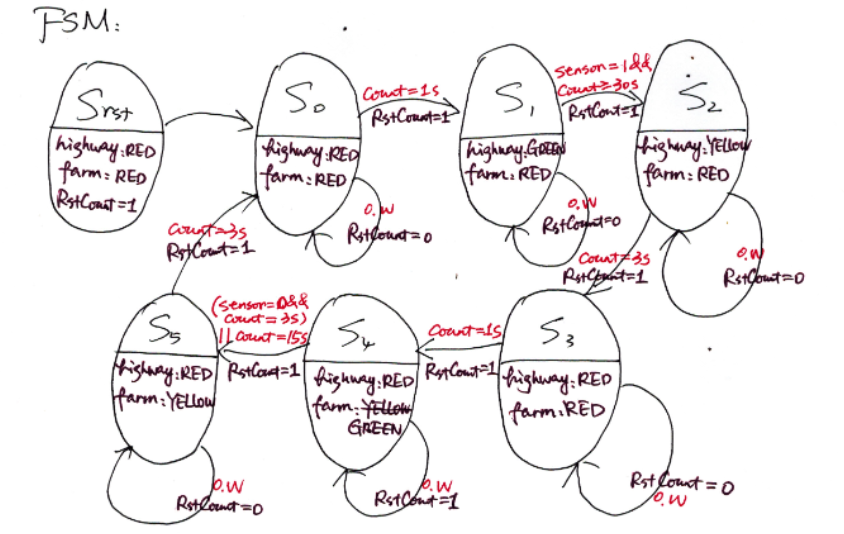 FSM:
Srst
highway:RED
farm:RED
RstCount=1
S0
highway:RED
farm:RED
Count=1s
RstCount=1
O.W
RstCount=0
S1
highway:GREEN
farm:RED
sensor=1&&
Count≥30s
RstCount=1
O.W
RstCount=0
S2
highway:YELLOW
farm:RED
O.W
RstCount=0
Count=3s
RstCount=1
S3
highway:RED
farm:RED
RstCount=0
O.W
Count=1s
RstCount=1
S4
highway:RED
farm:YELLOW
GREEN
O.W
RstCount=1
(sensor=0&&
Count=3s)
||Count=15s
RstCount=1
S5
highway:RED
farm:YELLOW
O.W
RstCount=0
Count=3s
RstCount=1